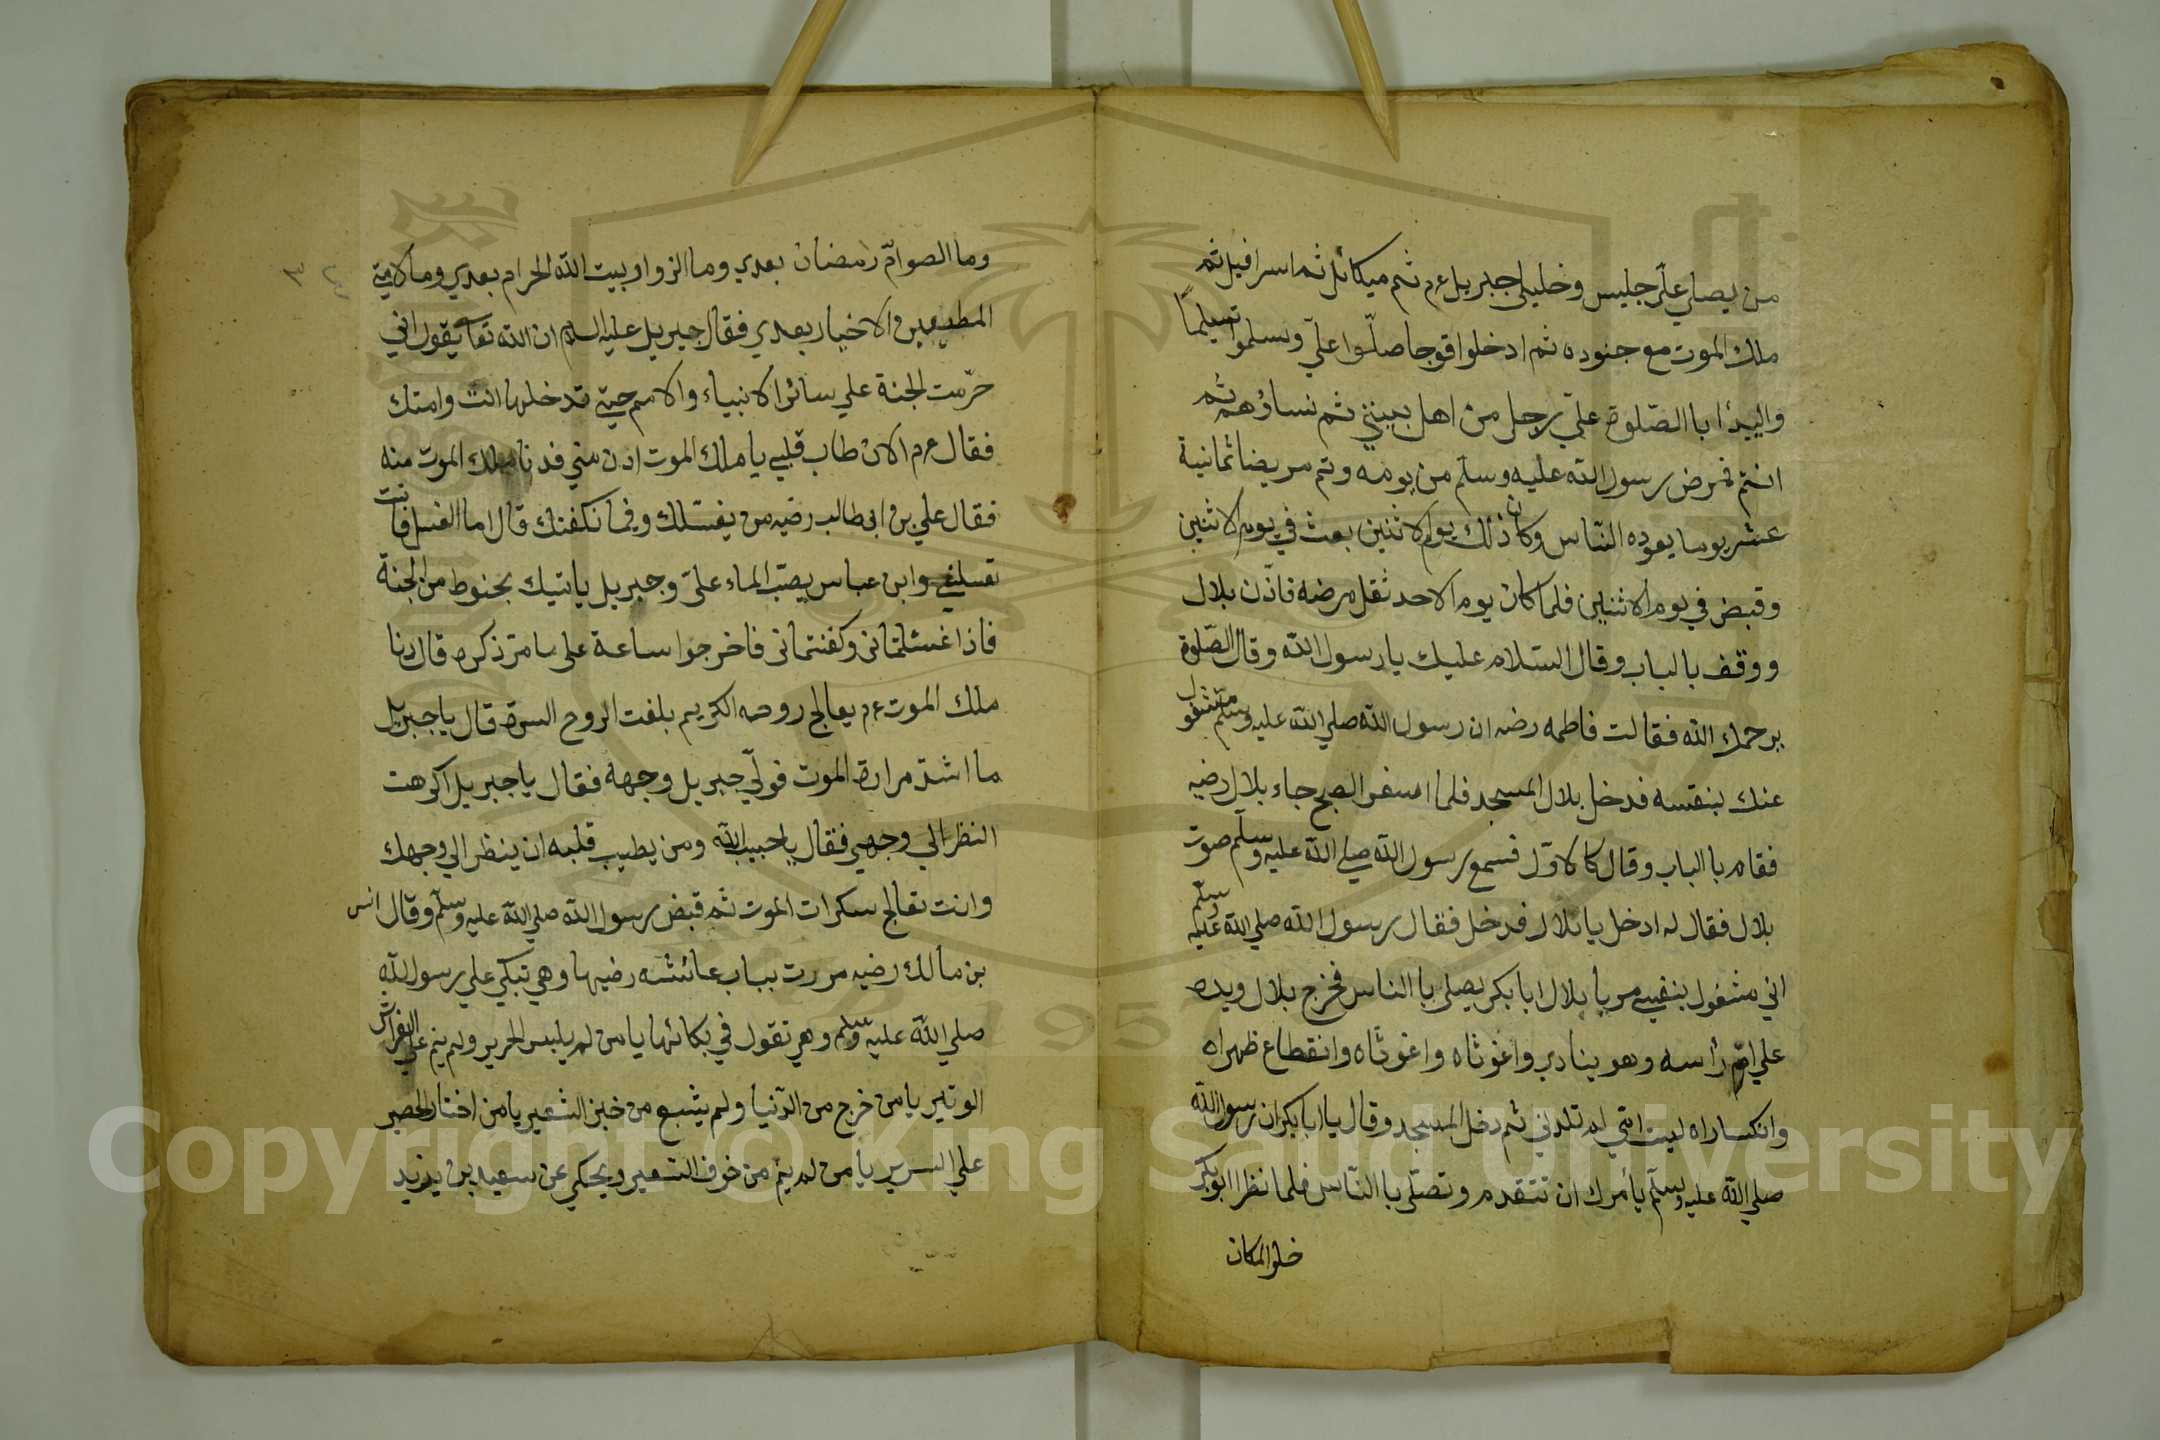 من يصلي عليّ جليس وخليلي جبريل عم ثم ميكائل ثم اسرافيل ثم
ملك الموت مع جنوده ثم ادخلوا فوجا صلّوا عليّ وسلموا تسيلمًا
واليبدأ با الصّلوة عليّ رجل من اهل بييتي ثم نساؤهم ثم
انتم فمرض رسول الله عليه وسلم من يومه وتم مريضا ثمانية
عشر يوما يعوده النّاس وكان ذلك يوم الاثنين بعث في يوم الاثنين
وقبض في يوم الاثنين فلما كان يوم الاحد ثقل مرضه فاذّن بلال
ووقف بالباب وقال السّلام عليك يا رسول الله وقال الصّلوة
يرحمك الله فقالت فاطمه رضه ان رسول الله صلي الله عليه وسلم مشغول
عنك بنفسه فدخل بلال المسجد فلما اسفر الصبح جاء بلال رضيه
فقام با الباب وقال كا لاوّل فسمع رسول الله صلي الله عليه وسلّم صوت
بلال فقال له ادخل يا بلال فدخل فقال رسول الله صلي الله عليه وسلّم
اني مشغول بنفسي مر يا بلال ابا بكر يصلي با الناس فخرج بلال ويده
علي امّ رأسه وهو ينادي واغوثاه واغوثاه وانقطاع ظهراه
وانكساراه ليت امّي لم تلدني ثم دخل المسجد وقال يا ابا بكر ان رسول الله
صلي الله عليه وسلّم يأمرك ان تتقدم وتصلّي با النّاس فلما نظر ابو بكر
خلو المكان
وما الصوامّ رمضان بعدي وما الزوار بيت الله الحرام بعدي وما لامتي
المطيعين والاخيار بعدي فقال جبريل عليه السلام ان الله تعا يقول اني
حرّمت الجنة علي سائر الانبياء والامم حتي تدخلها انت وامتك
فقال عم الان طاب قلبي يا ملك الموت ادن مني فدنا ملك الموت منه
فقال علي بن ابي طالب رضيه من يغسّلك وفيما نكفنك قال اما الغسل فانت
تغسلني وابن عباس يصبّ الماء عليّ وجبريل ياتيك بحنوط من الجنة
فاذا غسّلتماني وكفنتماني فاخرجوا ساعة علي ما مرّ ذكره قال دنا
ملك الموت عم يعالج روحه الكريم بلغت الروح السرة قال يا جبريل
ما اشدّ مرارة الموت فولّي جبريل وجهه فقال يا جبريل اكرهت
النظر الي وجهي فقال يا حبيب الله ومن يطيب قلبه ان ينظر الي وجهك
وانت تعالج سكرات الموت ثم قبض رسول الله صلي الله عليه وسلّم وقال انس
بن مالك رضيه مررت بباب عائشه رضيها وهي تبكي علي رسول الله
صلي الله عليه وسلم وهي تقول في بكائها يا من لم يلبس الحرير ولم ينم علي الفراش
الوتير يا من خرج من الدّنيا ولم يشبع من خبز الشعير يا من اختار الحصير
علي السرير يا من لم ينم من خوف السعير ويحكي عن سعيد بن يزيد
Copyright © King Saud University
1957